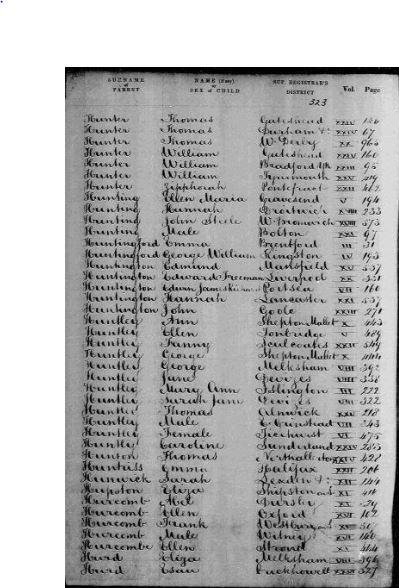 SURNAME of PARENT NAME (if any) or SEX of CHILD SUP. REGISTRAR'S DISTRICT Vol. Page
323
Hunter Thomas Gateshead XXIV
Hunter Thomas Durham &c XXIV 67
Hunter Thomas W. Derby XX 965
Hunter William Gateshead XXIV 160
Hunter William Bradford Yk XXIII 95
Hunter William Tynemouth XXV 419
Hunter Zipporah Pontefract XXII 462
Hunting Ellen Maria Gravesend V 194
Hunting Hannah Droitwich XVIII 233
Hunting John Steele W. Bromwich XVIII 573
Hunting Male Bolton XXI 97
Huntingford Emma Brentford III 31
Huntingford George William Kingston IV 193
Huntington Edmund Mansfield XV 537
Huntington Edward Freeman Liverpool XX 531
Huntington Edwin James Portsea VII 160
Huntington Hannah Lancaster XXI 537
Huntington John Goole XXIII 271
Huntley Ann Shepton Mallet X 443
Huntley Ellen Tonbridge V 409
Huntley Fanny Sculcoates XXII 549
Huntley George Shepton Mallet X 444
Huntley George Melksham VIII 392
Huntley Jane Devizes VIII 331
Huntley Mary Ann Islington III 222
Huntley Sarah Jane Devizes VIII 322
Huntley Thomas Alnwick XXV 218
Huntley Male E. Grinstead VII 343
Huntley Female Ticehurst VII 475
Huntly Caroline Sunderland XXIV 285
Hunton Thomas Northallerton XXIV 421
Huntriss Emma Halifax XXII 206
Hunwick Sarah Lexden &c XII 144
Hupston Eliza Shipston on S. XI 410
Hurcomb Abel Dursley XI
Hurcomb Ellen Oxford XVI 102
Hurcomb Frank Westbury on S. XI 507
Hurcomb Male Witney XVI 140
Hurcombe Ellen Stroud XI 464
Hurd Eliza Melksham VIII 396
Hurd Esau Cuckhowell XXVI 327